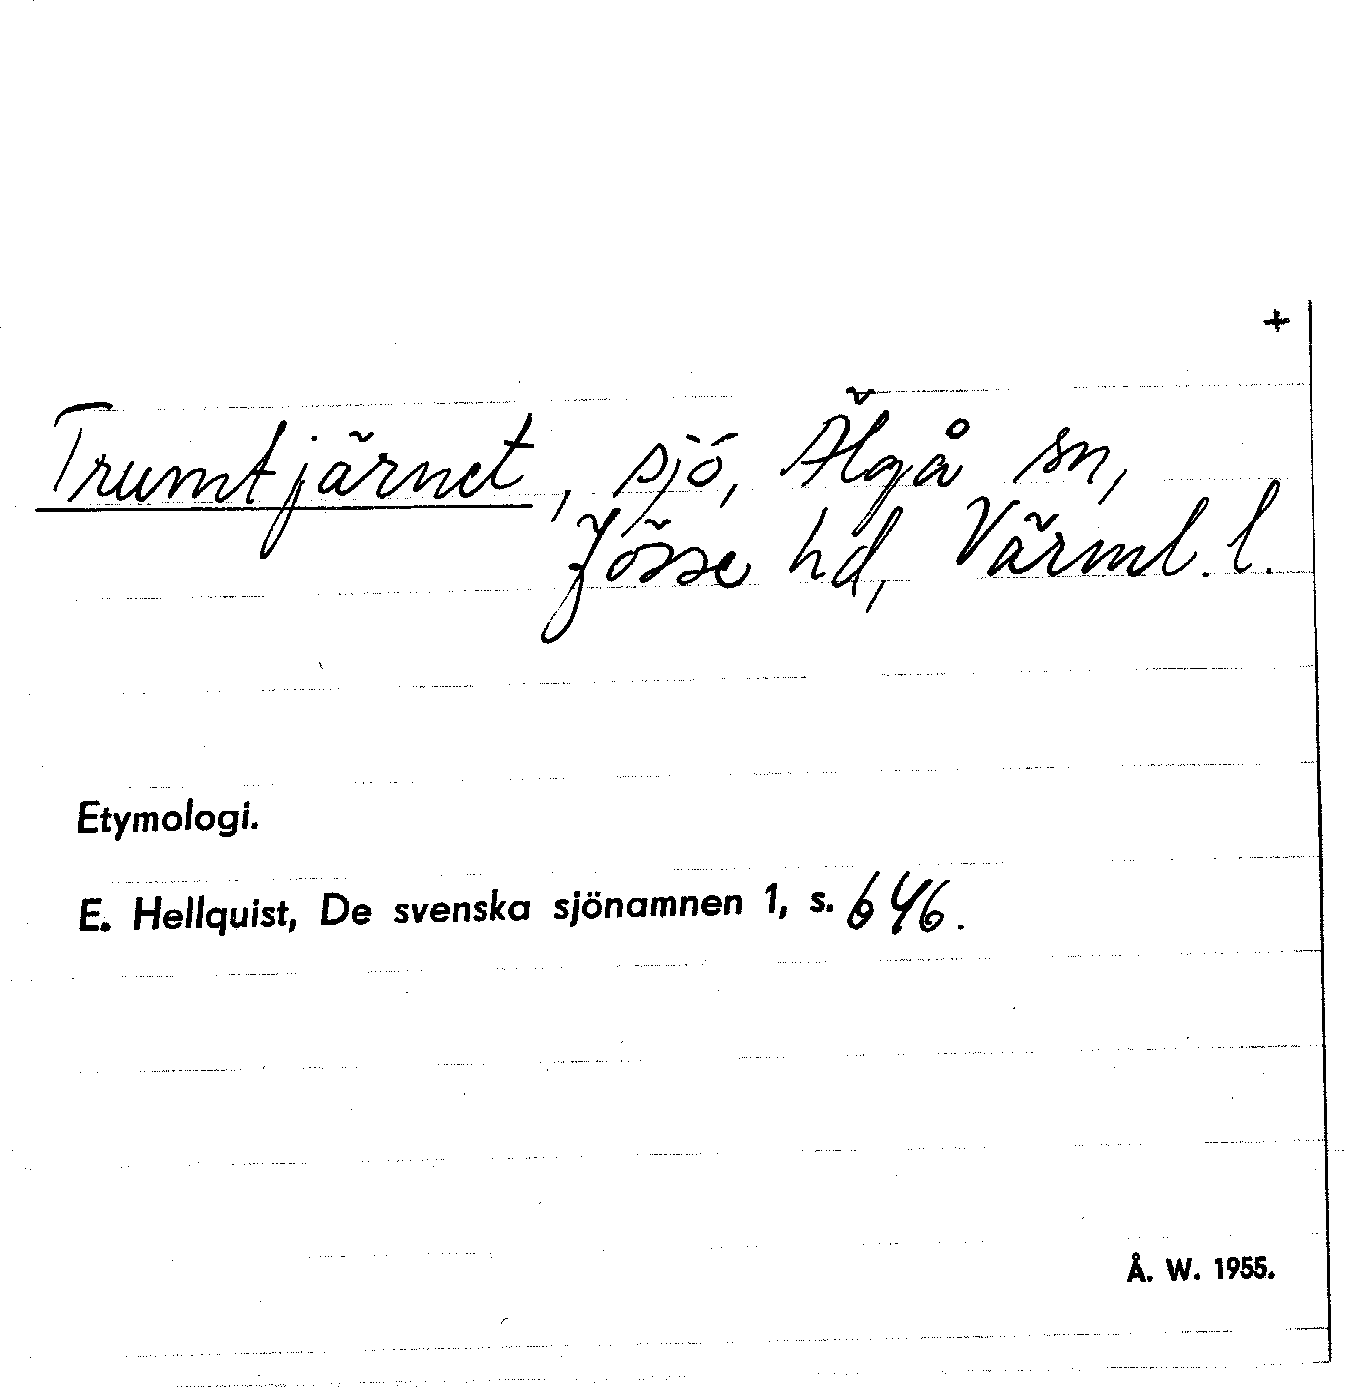 +
Trumtjärnet, sjö, Älgå sn,
Jösse hd, Värml. l.
Etymologi.
E. Hellquist, De svenska sjönamnen 1, s. 646.
Å. W. 1955.